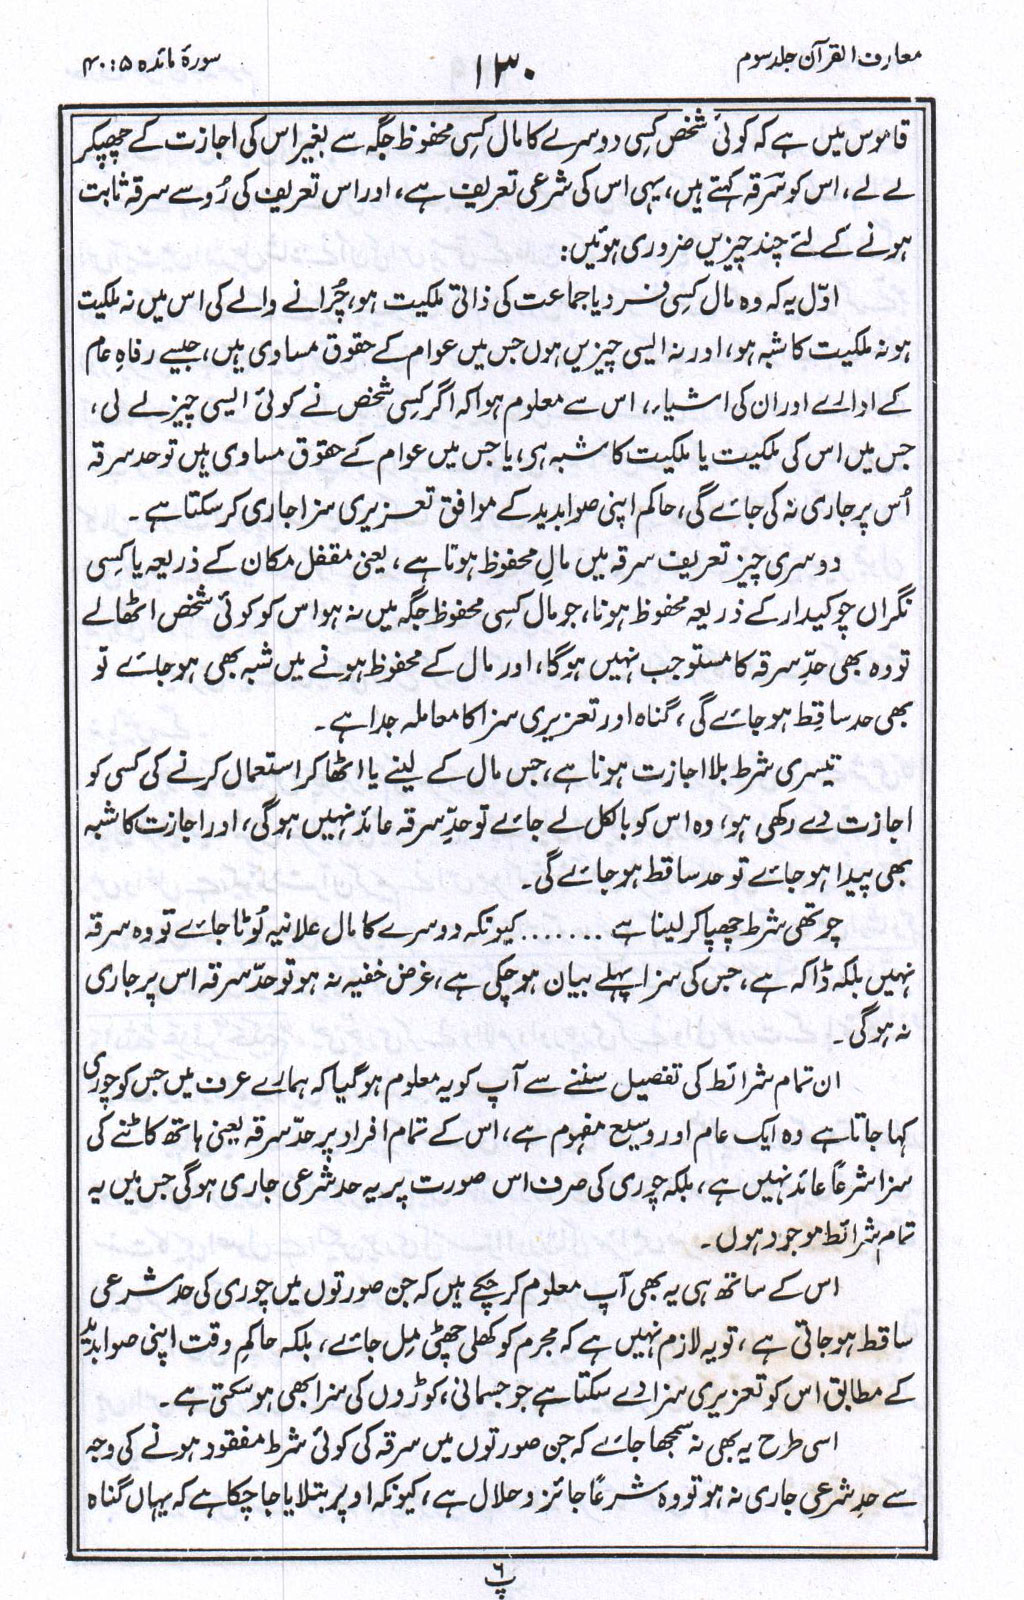 معارف القرآن جلد سوم
۱۳۰
سورۂ مائدہ ۵ : ۴۰
قاموس میں ہے کہ کوئی شخص کسی دوسرے کا مال کسی محفوظ جگہ سے بغیر اس کی اجازت کے چھپکر
لے لے، اس کو سَرقہ کہتے ہیں، یہی اس کی شرعی تعریف ہے، اور اس تعریف کی رُو سے سرقہ ثابت
ہونے کے لئے چند چیزیں ضروری ہوئیں:
اوّل یہ کہ وہ مال کسی فرد یا جماعت کی ذاتی ملکیت ہو، چُرانے والے کی اس میں نہ ملکیت
ہو نہ ملکیت کا شبہ ہو، اور نہ ایسی چیزیں ہوں جس میں عوام کے حقوق مساوی ہیں، جیسے رفاہِ عام
کے ادارے اور ان کی اشیاء، اس سے معلوم ہوا کہ اگر کسی شخص نے کوئی ایسی چیز لے لی،
جس میں اس کی ملکیت یا ملکیت کا شبہ ہی، یا جس میں عوام کے حقوق مساوی ہیں تو حد سرقہ
اُس پر جاری نہ کی جائے گی، حاکم اپنی صوابدید کے موافق تعزیری سزا جاری کر سکتا ہے۔
دوسری چیز تعریف سرقہ میں مالِ محفوظ ہوتا ہے، یعنی مقفل مکان کے ذریعہ یا کسی
نگراں چوکیدار کے ذریعہ محفوظ ہونا، جو مال کسی محفوظ جگہ میں نہ ہو اس کو کوئی شخص اٹھالے
تو وہ بھی حدِّ سرقہ کا مستوجب نہیں ہوگا، اور مال کے محفوظ ہونے میں شبہ بھی ہو جائے تو
بھی حد ساقط ہو جائے گی، گناہ اور تعزیری سزا کا معاملہ جدا ہے۔
تیسری شرط بلا اجازت ہونا ہے، جس مال کے لینے یا اٹھا کر استعمال کرنے کی کسی کو
اجازت دے رکھی ہو، وہ اس کو بالکل لے جائے تو حدِّ سرقہ عائد نہیں ہوگی، اور اجازت کا شبہ
بھی پیدا ہو جائے تو حد ساقط ہو جائے گی۔
چوتھی شرط چھپا کر لینا ہے ....... کیونکہ دوسرے کا مال علانیہ لُوٹا جائے تو وہ سرقہ
نہیں بلکہ ڈاکہ ہے، جس کی سزا پہلے بیان ہو چکی ہے، غرض خفیہ نہ ہو تو حدّ سرقہ اس پر جاری
نہ ہوگی۔
ان تمام شرائط کی تفصیل سننے سے آپ کو یہ معلوم ہو گیا کہ ہمارے عرف میں جس کو چوری
کہا جاتا ہے وہ ایک عام اور وسیع مفہوم ہے، اس کے تمام افراد پر حدّ سرقہ یعنی ہاتھ کاٹنے کی
سزا شرعاً عائد نہیں ہے، بلکہ چوری کی صرف اس صورت پر یہ حد شرعی جاری ہوگی جس میں یہ
تمام شرائط موجود ہوں۔
اس کے ساتھ ہی یہ بھی آپ معلوم کر چکے ہیں کہ جن صورتوں میں چوری کی حد شرعی
ساقط ہو جاتی ہے، تو یہ لازم نہیں ہے کہ مجرم کو کھلی چھٹی مِل جائے، بلکہ حاکمِ وقت اپنی صوابدید
کے مطابق اس کو تعزیری سزا دے سکتا ہے جو جسمانی، کوڑوں کی سزا بھی ہو سکتی ہے۔
اسی طرح یہ بھی نہ سمجھا جائے کہ جن صورتوں میں سرقہ کی کوئی شرط مفقود ہونے کی وجہ
سے حدِ شرعی جاری نہ ہو تو وہ شرعاً جائز و حلال ہے، کیونکہ اوپر بتلایا جا چکا ہے کہ یہاں گناہ
پ ۶